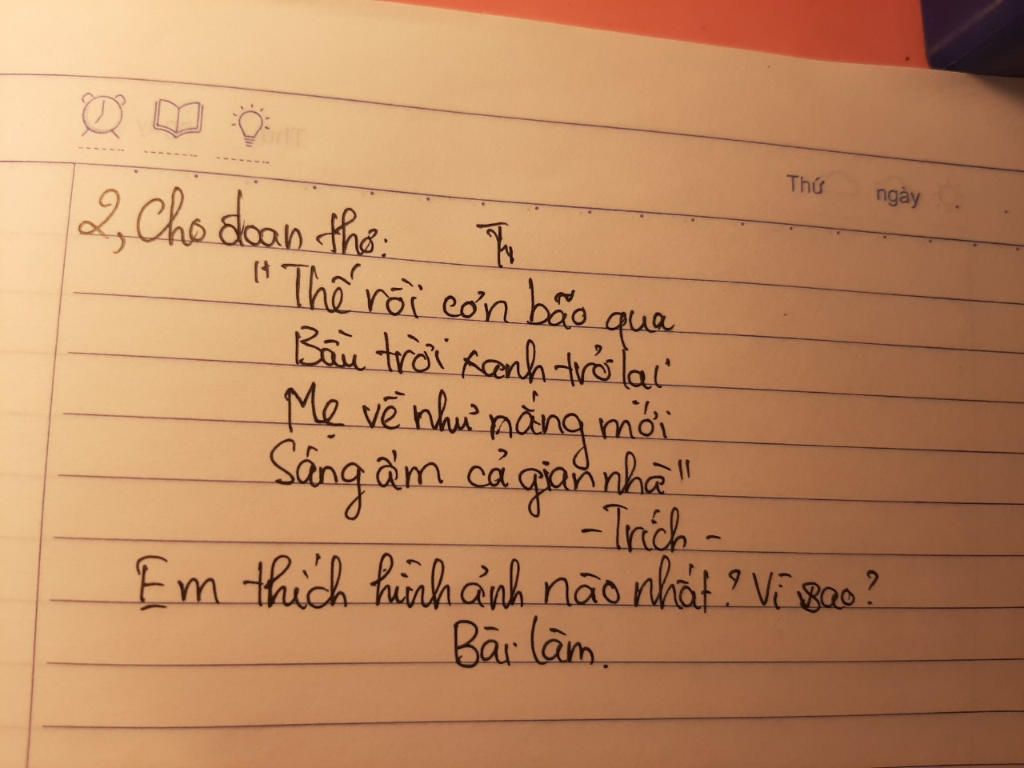 Thứ ngày
2, Cho đoan thơ:
"Thế rồi cơn bão qua
Bầu trời xanh trở lại
Mẹ về như nắng mới
Sáng ấm cả gian nhà"
- Trích -
Em thích hình ảnh nào nhất? Vì sao?
Bài làm.